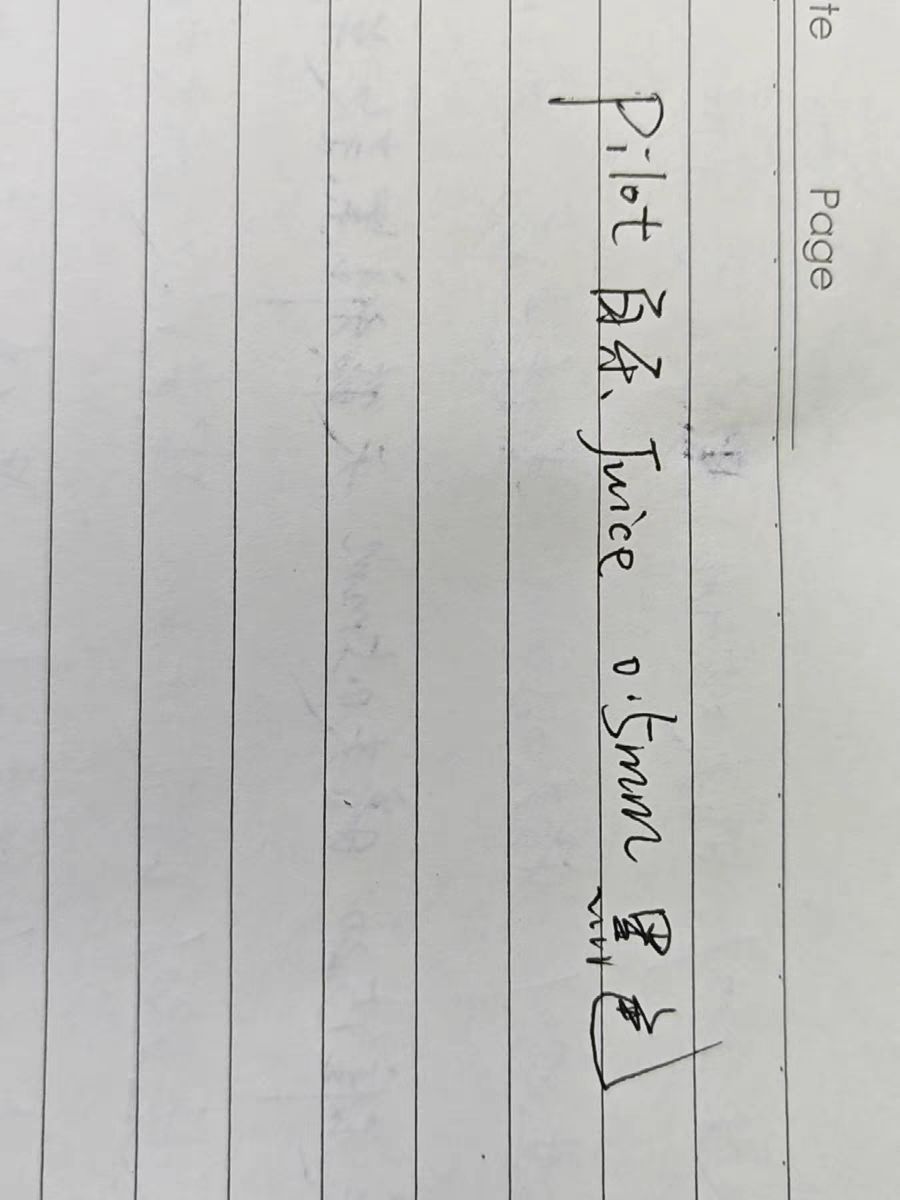 te Page
Pilot 百乐 Juice 0.5mm 黑色